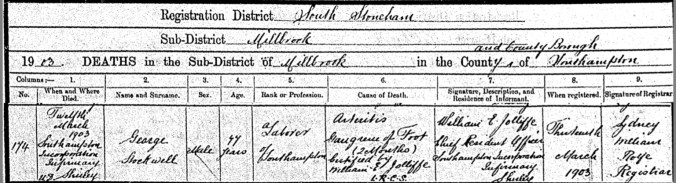 Registration District South Stoneham
Sub-District Millbrook and County Borough
1903 DEATHS in the Sub-District of Millbrook in the County s of Southampton
Columns:— 1. 2. 3. 4. 5. 6. 7. 8. 9.
No. When and Where Died. Name and Surname. Sex. Age. Rank or Profession. Cause of Death. Signature, Description, and Residence of Informant. When registered. Signature of Registrar
174
Twelfth March 1903 Southampton Incorporation Infirmary Shirley
George Sockwell
Male
47 years
a Laborer of Southampton
Arteritis Gangrene of Foot (2 Months) Certified by William E Jolliffe L.R.C.S.
William E Jolliffe Chief Resident Officer Southampton Incorporation Infirmary Shirley
Thirteenth March 1903
Sydney William Registrar